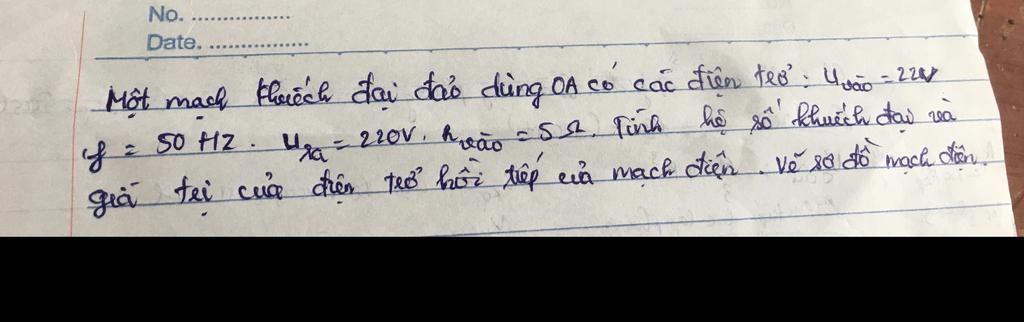 No. ................
Date. ................
Một mạch khuếch đại đảo dùng OA có các điện trở: Uvào = 22V
f = 50 HZ. Ura = 220V. Rvào = 5 Ω. Tính hệ số khuếch đại và
giá trị của điện trở hồi tiếp của mạch điện. Vẽ sơ đồ mạch điện.